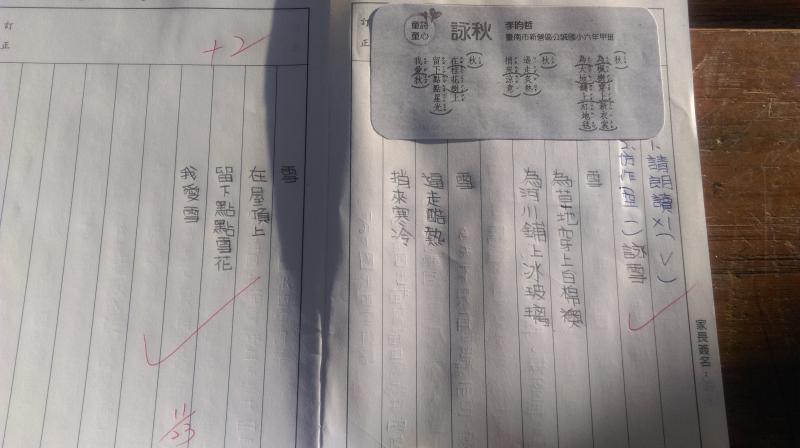 童詩
童心
詠秋
李昀哲
臺南市新營區公誠國小六年甲班
(秋)
為楓樹穿上新衣裳
為大地鋪上紅地毯
(秋)
逼走炎熱
捎來涼意
(秋)
在桂花樹上
留下點點星光
我愛秋
家長簽名：
請朗讀×1(✓)
詠雪
雪
為草地穿上白棉襖
為河川鋪上冰玻璃
雪
逼走酷熱
捎來寒冷
訂正
雪
在屋頂上
留下點點雪花
我愛雪
+2
11/23
訂正